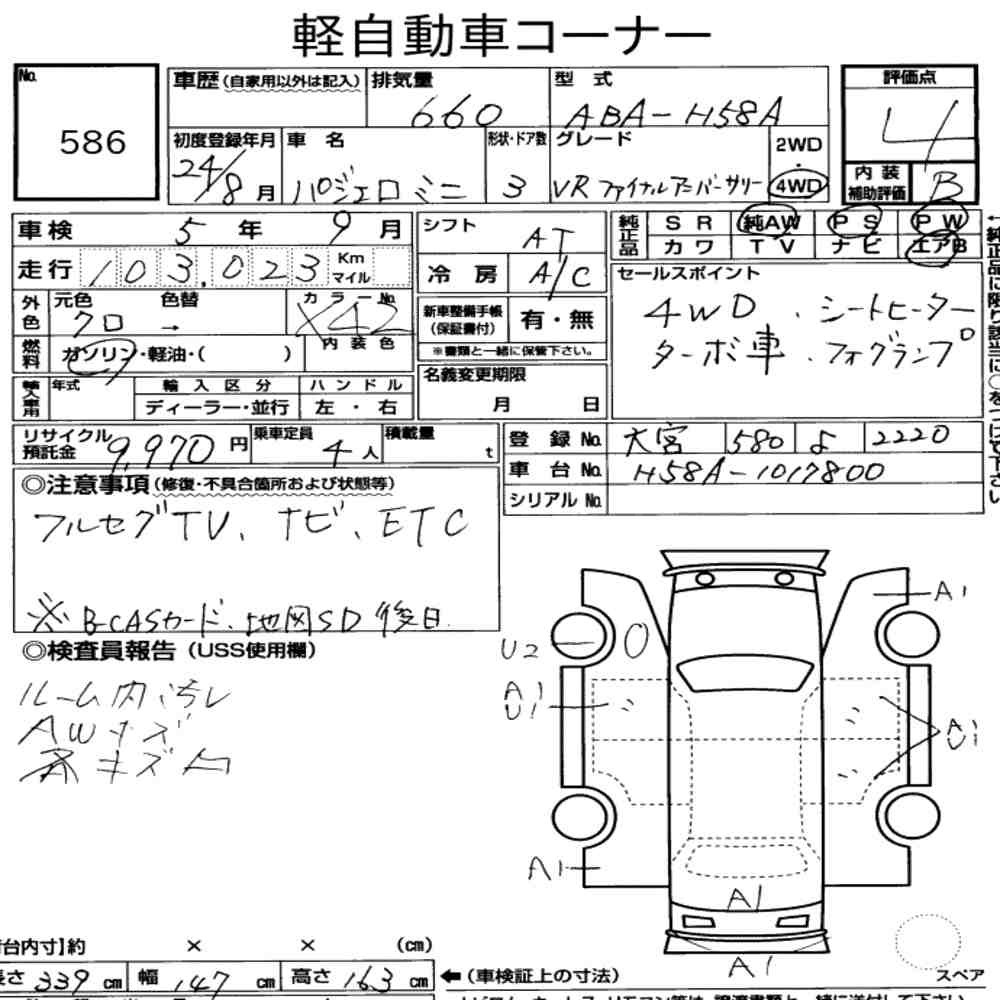 軽自動車コーナー
No.
586
車歴(自家用以外は記入) 排気量 660 型式 ABA-H58A
評価点 4
初度登録年月 24/8月 車名 パジェロミニ 形状・ドア数 3 グレード VRファイナルアニバーサリー 2WD・4WD
内装補助評価 B
車検 5年 9月
走行 103,023 Km マイル
外色 元色 クロ 色替 → カラーNo. X42
内装色
燃料 ガソリン・軽油・( )
輸入車用 年式 輸入区分 ディーラー・並行 ハンドル 左・右
シフト AT
冷房 A/C
新車整備手帳(保証書付) 有・無
※書類と一緒に保管下さい。
名義変更期限
月 日
純正品 SR 純AW PS PW
カワ TV ナビ エアB
セールスポイント
4WD、シートヒーター
ターボ車、フォグランプ
←純正品に限り該当に○をつけて下さい
リサイクル預託金 9,970円 乗車定員 4人 積載量 t
登録No. 大宮 580 よ 2220
車台No. H58A-1017800
シリアルNo.
◎注意事項(修復・不具合箇所および状態等)
フルセグTV、ナビ、ETC
※B-CASカード、地図SD後日
◎検査員報告(USS使用欄)
ルーム内汚レ
AWキズ
キズ凹
A1
U2
A1
U1
A1
A1
A1
台内寸]約 × × (cm)
長さ 339 cm 幅 147 cm 高さ 163 cm
←(車検証上の寸法)
スペア